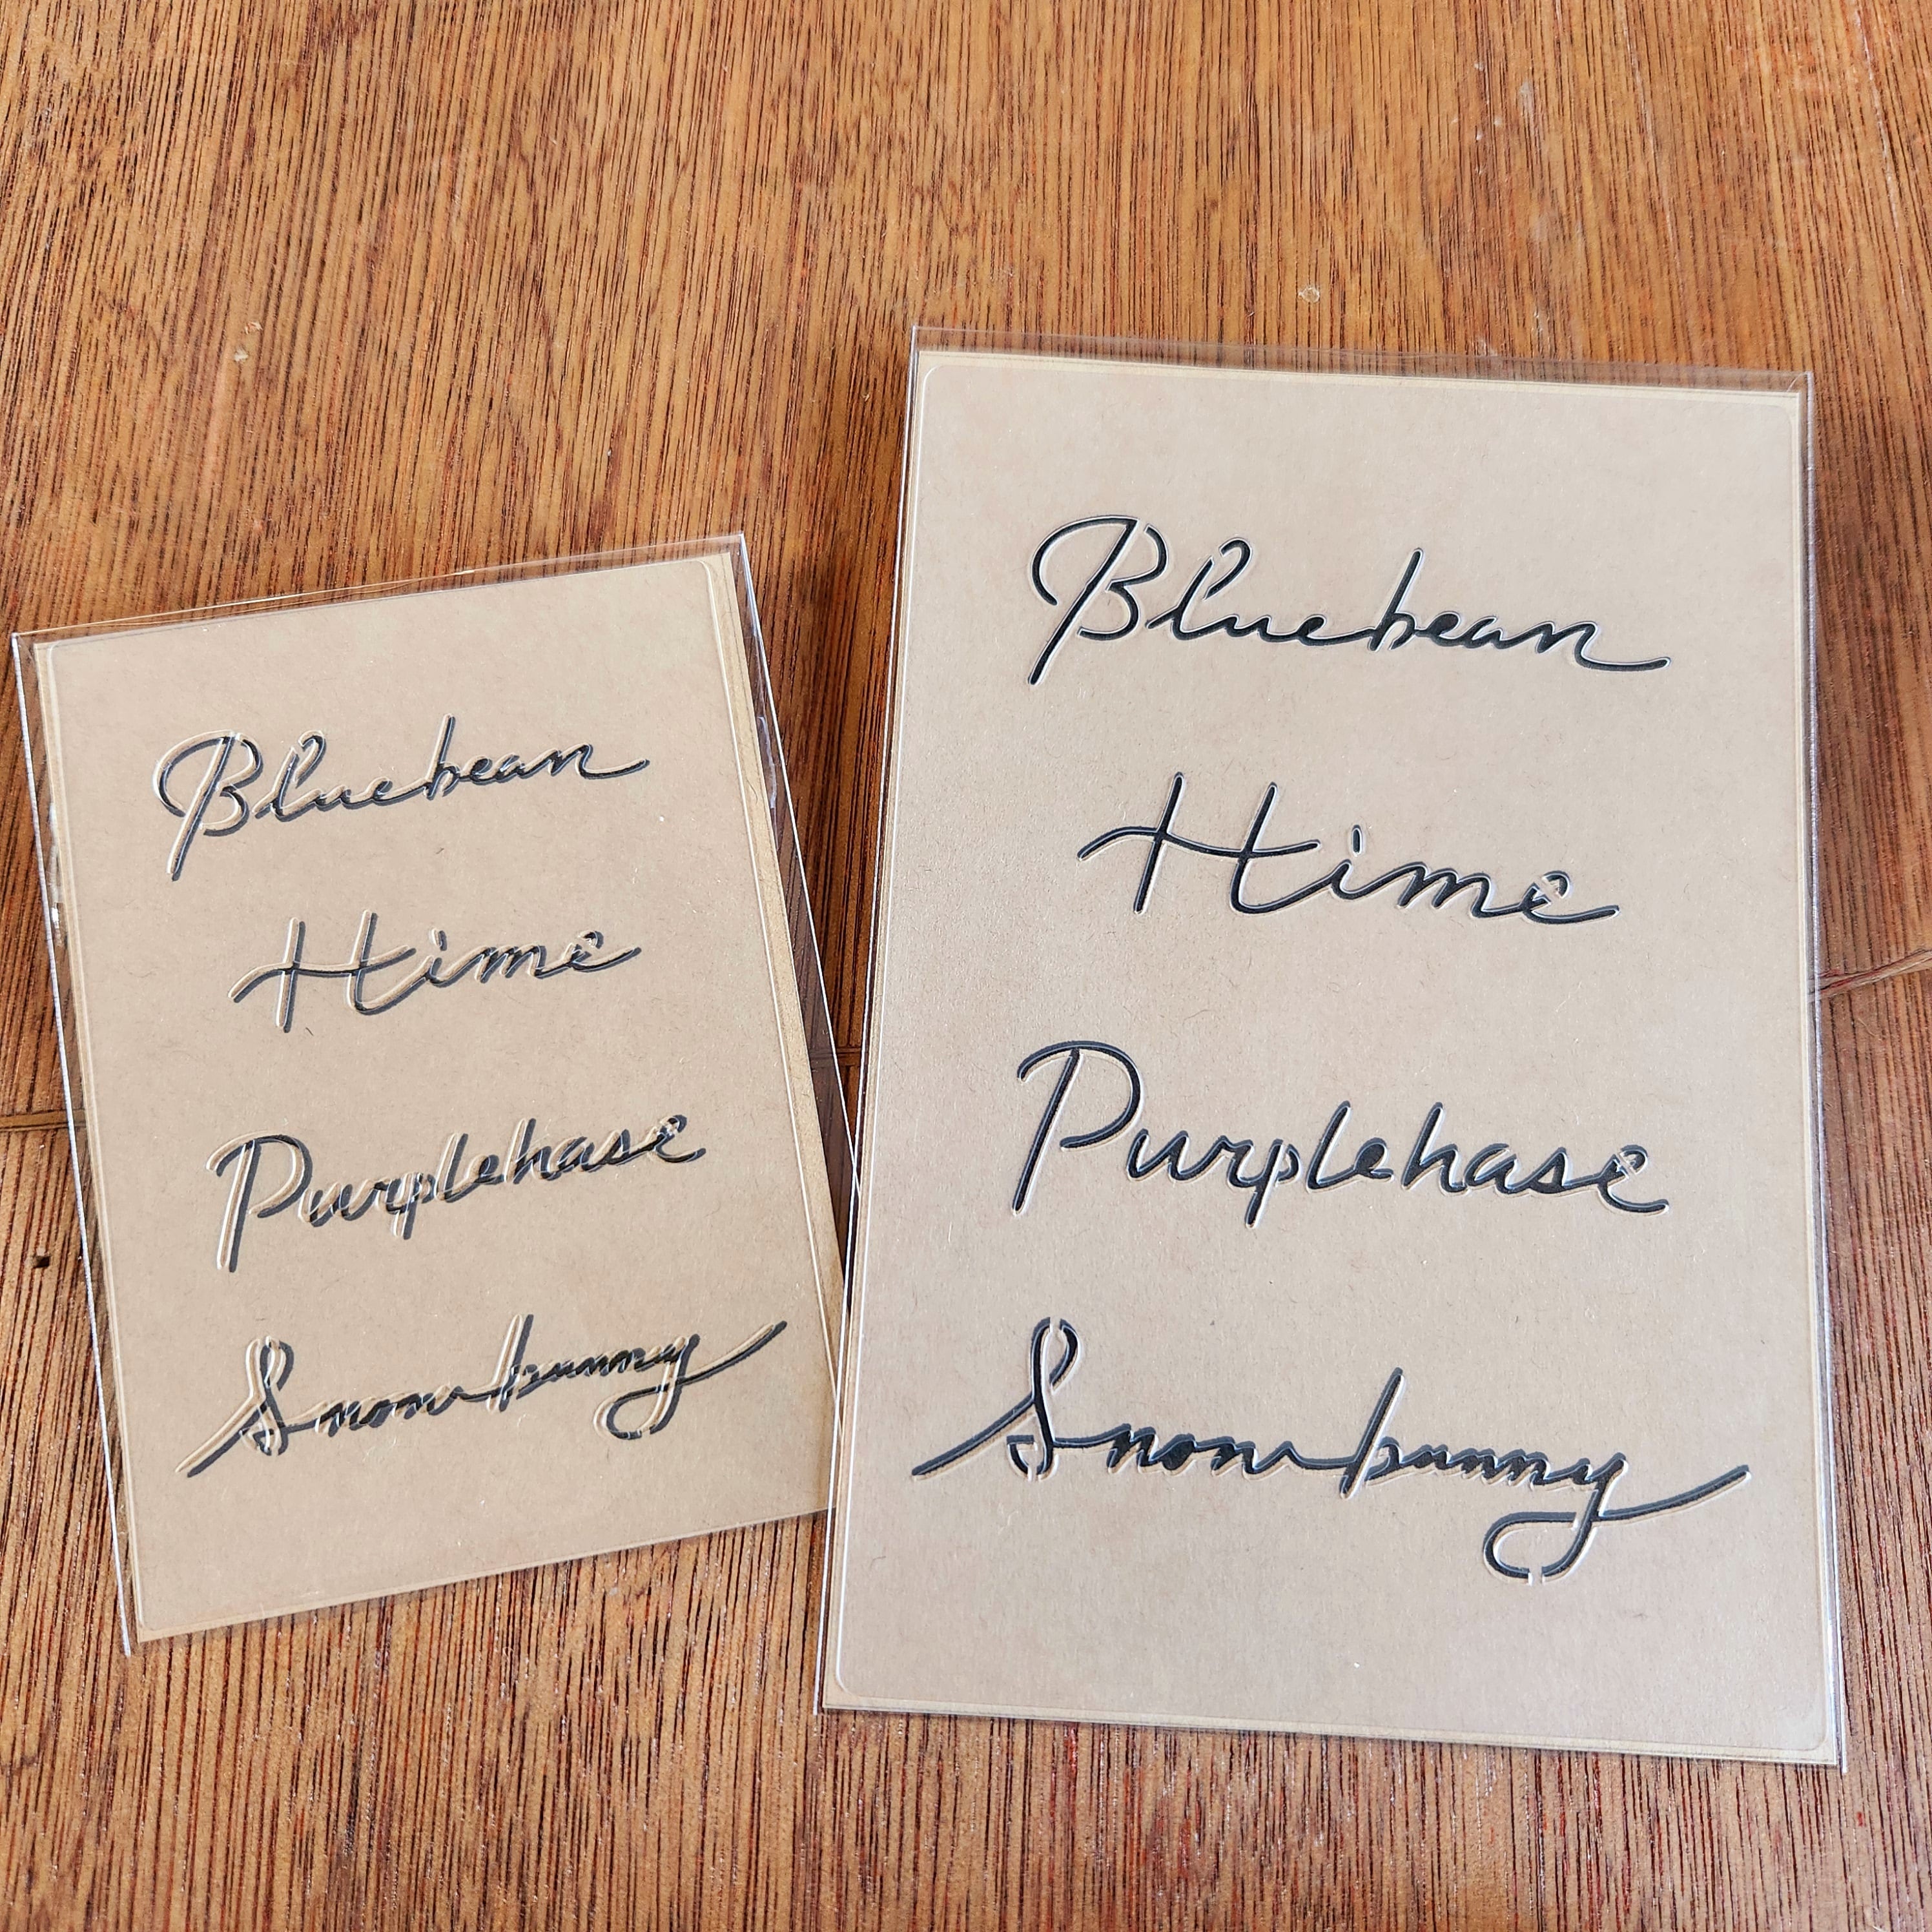 Bluebean
Hime
Purplehase
Snowbunny
Bluebean
Hime
Purplehase
Snowbunny